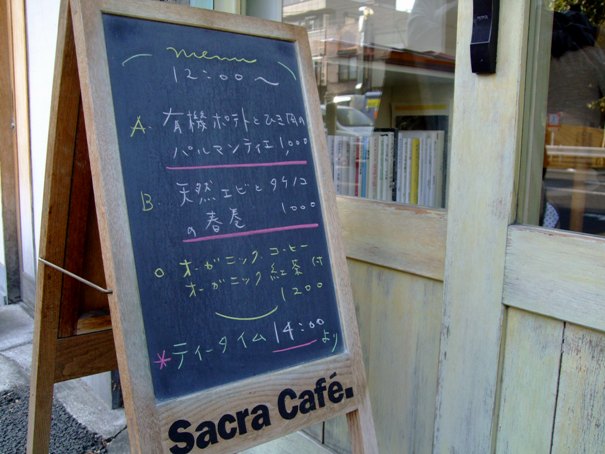 menu
12:00～
A. 有機ポテトとひき肉の
パルマンティエ 1,000
B 天然エビとタケノコ
の春巻 1000
○ オーガニックコーヒー
オーガニック紅茶 付
1200
*ティータイム 14:00より
Sacra Café.